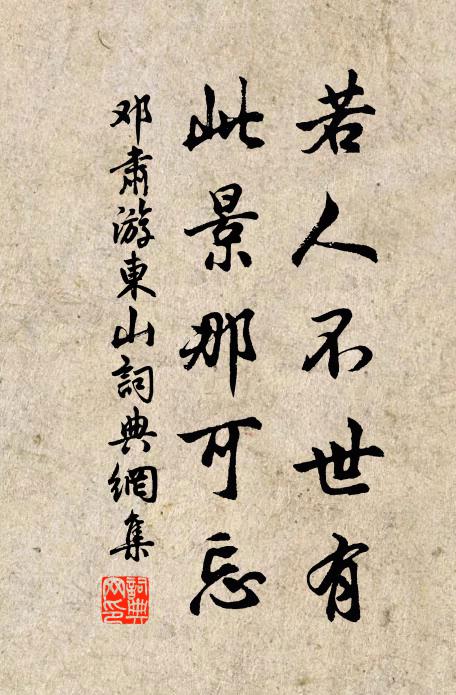 若人不世有
此景那可忘
邓肃游東山詞典網集
詞典网印